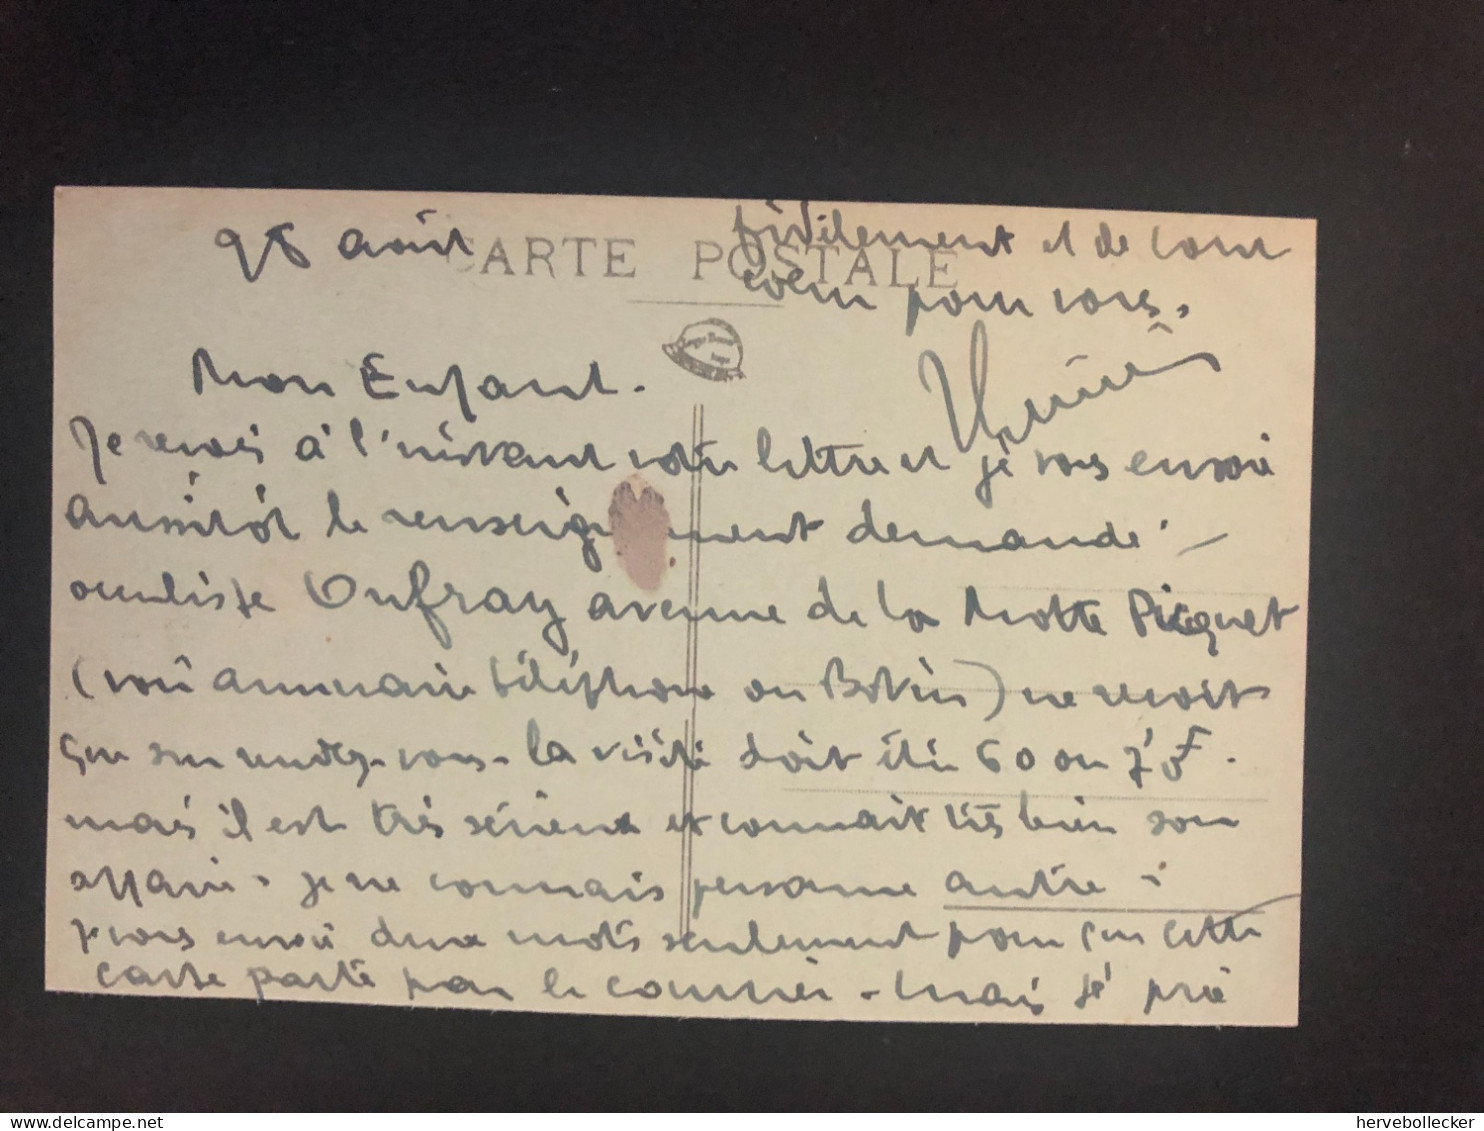 août
CARTE POSTALE
Mon Enfant.
Je reçois à l'instant votre lettre et je vous envoie
aussitôt le renseignement demandé -
oculiste Onfray avenue de la Motte Picquet
(voir annuaire téléphone ou Bottin) ne reçoit
que sur rendez-vous - la visite doit être 60 ou 70F.
mais il est très sérieux et connaît très bien son
affaire. je ne connais personne autre.
je vous envoie deux mots seulement pour que cette
carte parte par le courrier - mais je prie
fidèlement et de tout
coeur pour vous.
hervebollecker